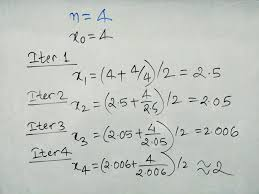 n = 4
x₀ = 4
Iter 1
x₁ = (4 + 4/4)/2 = 2.5
Iter 2
x₂ = (2.5 + 4/2.5)/2 = 2.05
Iter 3
x₃ = (2.05 + 4/2.05)/2 = 2.006
Iter 4
x₄ = (2.006 + 4/2.006)/2 ≈ 2